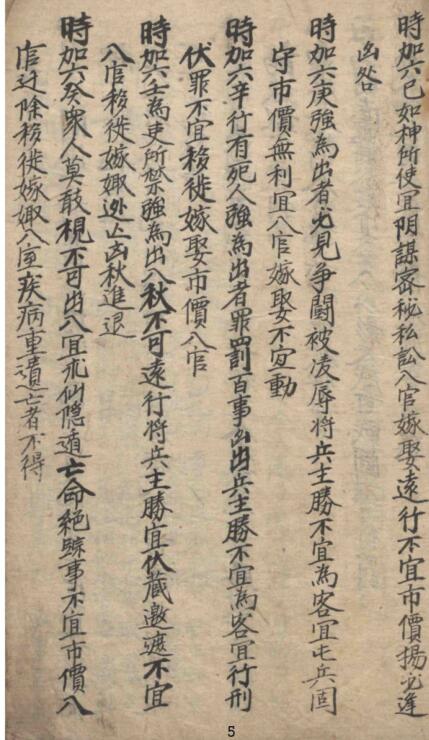 時加六己如神所使宜阴謀密秘私訟入官嫁娶遠行不宜市價揚必逢
凶咎
時加六庚強為出者必見爭鬪被凌辱將兵主勝不宜為客宜屯兵固
守市價無利宜入官嫁娶不宜動
時加六辛行有死人強為出者罪罰百事凶出兵主勝不宜為客宜行刑
伏罪不宜移徙嫁娶市價入官
時加六壬為吏所禁強為出入秋不可遠行將兵主勝宜伏藏邀遮不宜
入官移徙嫁娵逃亡凶秋進退
時加六癸衆人莫敢梘不可出入宜求仙隱遁亡命絕跡事不宜市價入
官迁除移徙嫁娵入室疾病重遺亡者不得
5